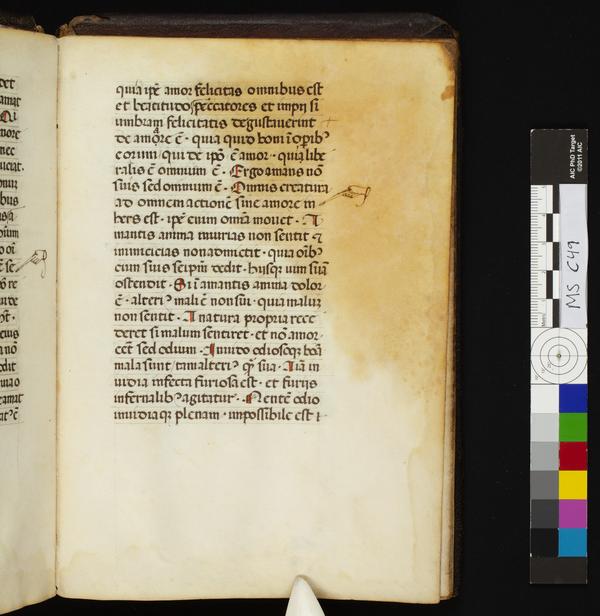 quia ip̄e amor felicitas omnibus est
et beatitudo peccatores et impii si
umbram felicitatis degustauerint
de amore ē · quia quid boni ī opib᾿
eorum qui de ip̄o ē amor · quia libe
ralis ē omnium ē · Ergo amans nō
suus sed omnium ē · Omnis creatura
ad omnem actionē siue amore in
hers est · ip̄e enim omīa mouet · A
mantis anima iniurias non sentit ⁊
inimicicias non admictit · quia oīb᾿
cum suis seipm̄ dedit · huiusq uim suā
ostendit · Si ī amantis anima dolor
ē · alteri᾿ mali ē non sui · quia malum
non sentit · A natura propria rece
deret si malum sentiret · et nō amor
eēt sed odium · Inuido odiosoq boā
mala sunt tam alteri᾿ qᷓ sua · Nā in
uidia infecta furiosa est · et furiis
infernalib᾿ agitatur · Mentē odio
inuidiaq plenam · impossibile est
MS C49
AIC PhD Target
©2011 AIC